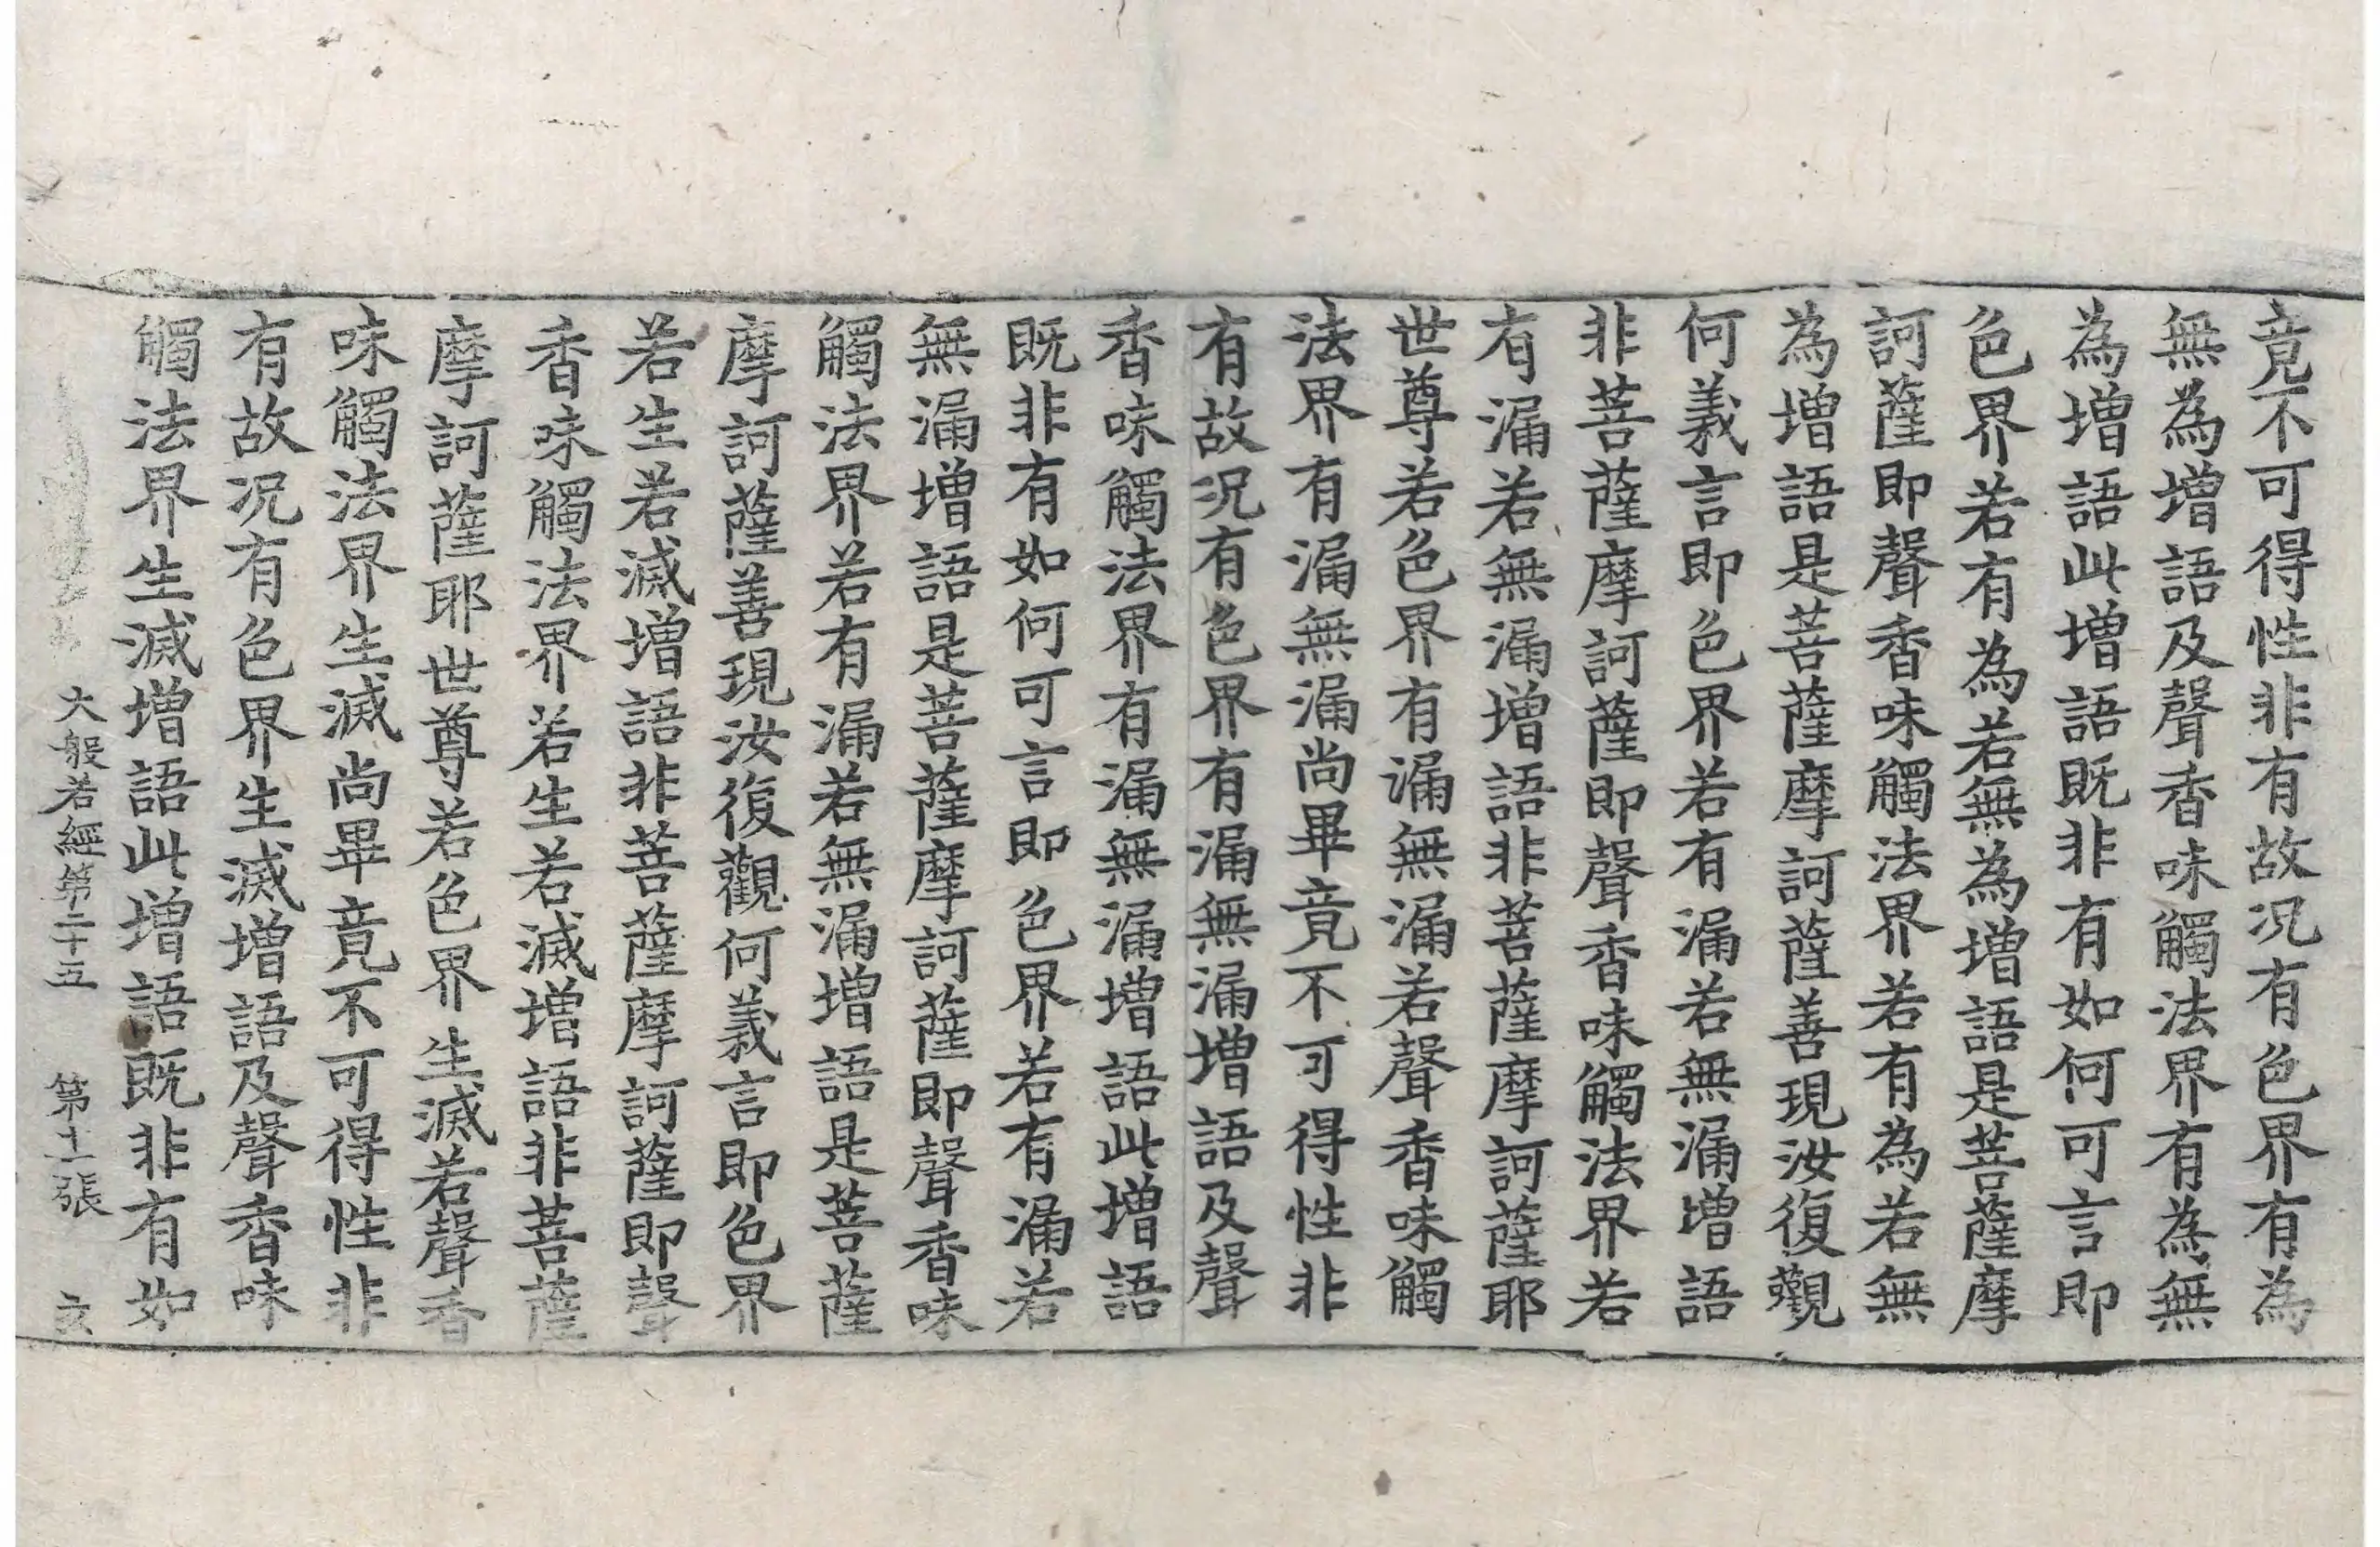 竟不可得性非有故况有色界有為
無為增語及聲香味觸法界有為無
為增語此增語既非有如何可言即
色界若有為若無為增語是菩薩摩
訶薩即聲香味觸法界若有為若無
為增語是菩薩摩訶薩善現汝復觀
何義言即色界若有漏若無漏增語
非菩薩摩訶薩即聲香味觸法界若
有漏若無漏增語非菩薩摩訶薩耶
世尊若色界有漏無漏若聲香味觸
法界有漏無漏尚畢竟不可得性非
有故况有色界有漏無漏增語及聲
香味觸法界有漏無漏增語此增語
既非有如何可言即色界若有漏若
無漏增語是菩薩摩訶薩即聲香味
觸法界若有漏若無漏增語是菩薩
摩訶薩善現汝復觀何義言即色界
若生若滅增語非菩薩摩訶薩即聲
香味觸法界若生若滅增語非菩薩
摩訶薩耶世尊若色界生滅若聲香
味觸法界生滅尚畢竟不可得性非
有故况有色界生滅增語及聲香味
觸法界生滅增語此增語既非有如
大般若經第二十五 第十一張